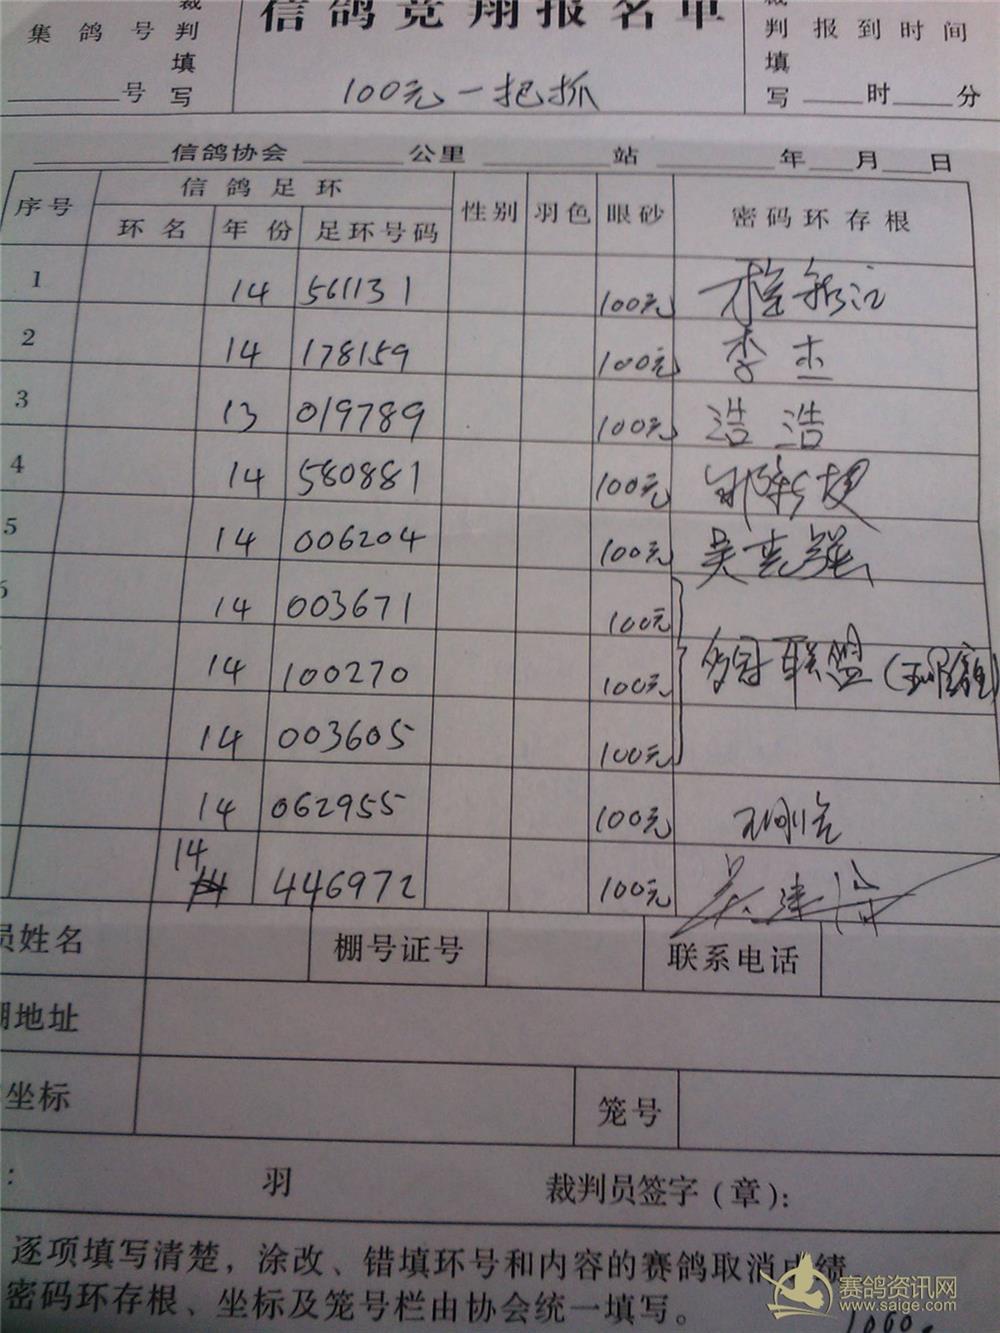 信鸽竞翔报名单
集鸽号 裁判填写 裁判填写 报到时间
号 100元一把抓 时 分
信鸽协会 公里 站 年 月 日
序号 信鸽足环 性别 羽色 眼砂 密码环存根
环名 年份 足环号码
1 14 561131 100元
2 14 178159 100元 李杰
3 13 019789 100元 浩浩
4 14 580881 100元
5 14 006204 100元 吴克强
14 003671 100元
14 100270 100元 多冠联盟
14 003605 100元
14 062955 100元
14 446972 100元
员姓名 棚号证号 联系电话
棚地址
坐标 笼号
: 羽 裁判员签字(章):
逐项填写清楚，涂改、错填环号和内容的赛鸽取消成绩
密码环存根、坐标及笼号栏由协会统一填写。
赛鸽资讯网
www.saige.com
1000